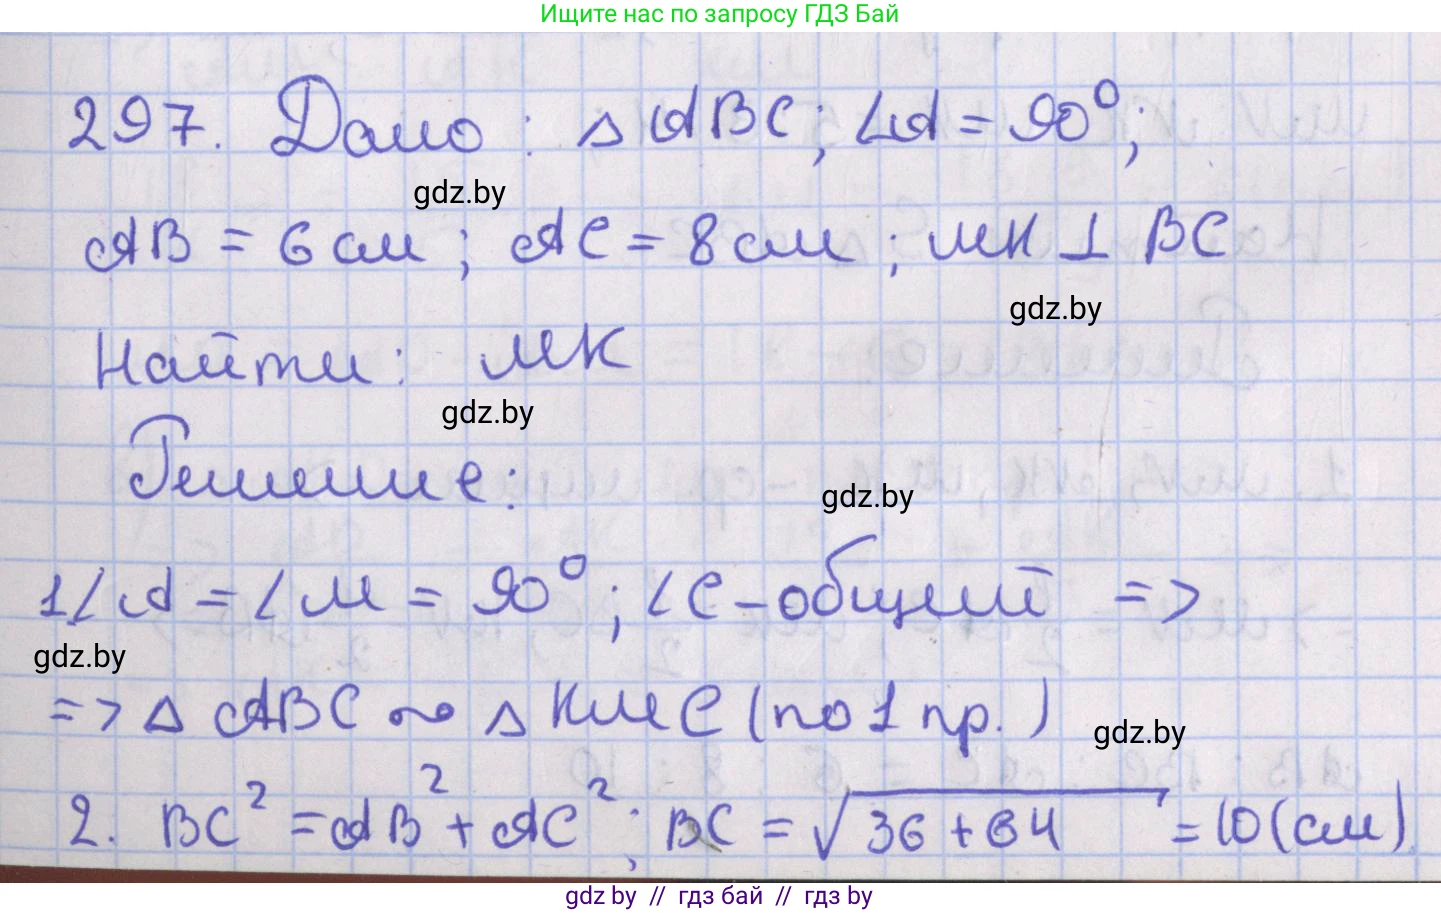 Ищите нас по запросу ГДЗ Бай
297. Дано: △ABC; ∠A = 90°;
gdz.by
AB = 6 см; AC = 8 см; MK ⊥ BC
gdz.by
Найти: MK
gdz.by
Решение:
gdz.by
1 ∠A = ∠M = 90°; ∠C - общий =>
gdz.by
=> △ ABC ∾ △ KMC (по 1 пр.)
gdz.by
2. BC² = AB² + AC²; BC = √36 + 64 = 10 (см)
gdz.by // гдз бай // гдз by